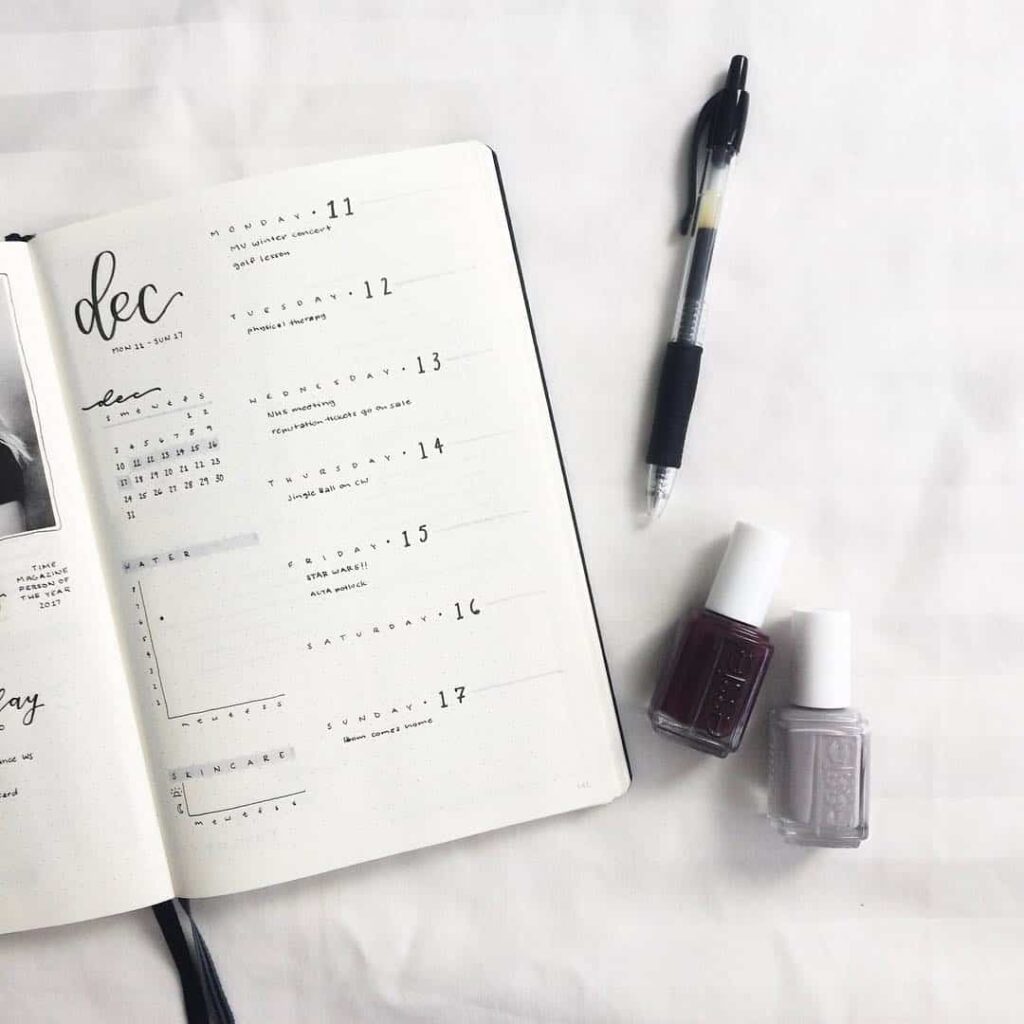 TIME
MAGAZINE
PERSON OF
THE YEAR
2017
dec
MON 11 - SUN 17
dec
S M T W T F S
1 2
3 4 5 6 7 8 9
10 11 12 13 14 15 16
17 18 19 20 21 22 23
24 25 26 27 28 29 30
31
WATER
8
7
6
5
4
3
2
1
M T W T F S S
SKINCARE
M T W T F S S
MONDAY • 11
MV winter concert
golf lesson
TUESDAY • 12
physical therapy
WEDNESDAY • 13
NHS meeting
reputation tickets go on sale
THURSDAY • 14
Jingle Ball on CW
FRIDAY • 15
STAR WARS!!
ALTA potluck
SATURDAY • 16
SUNDAY • 17
comes home
essie
essie